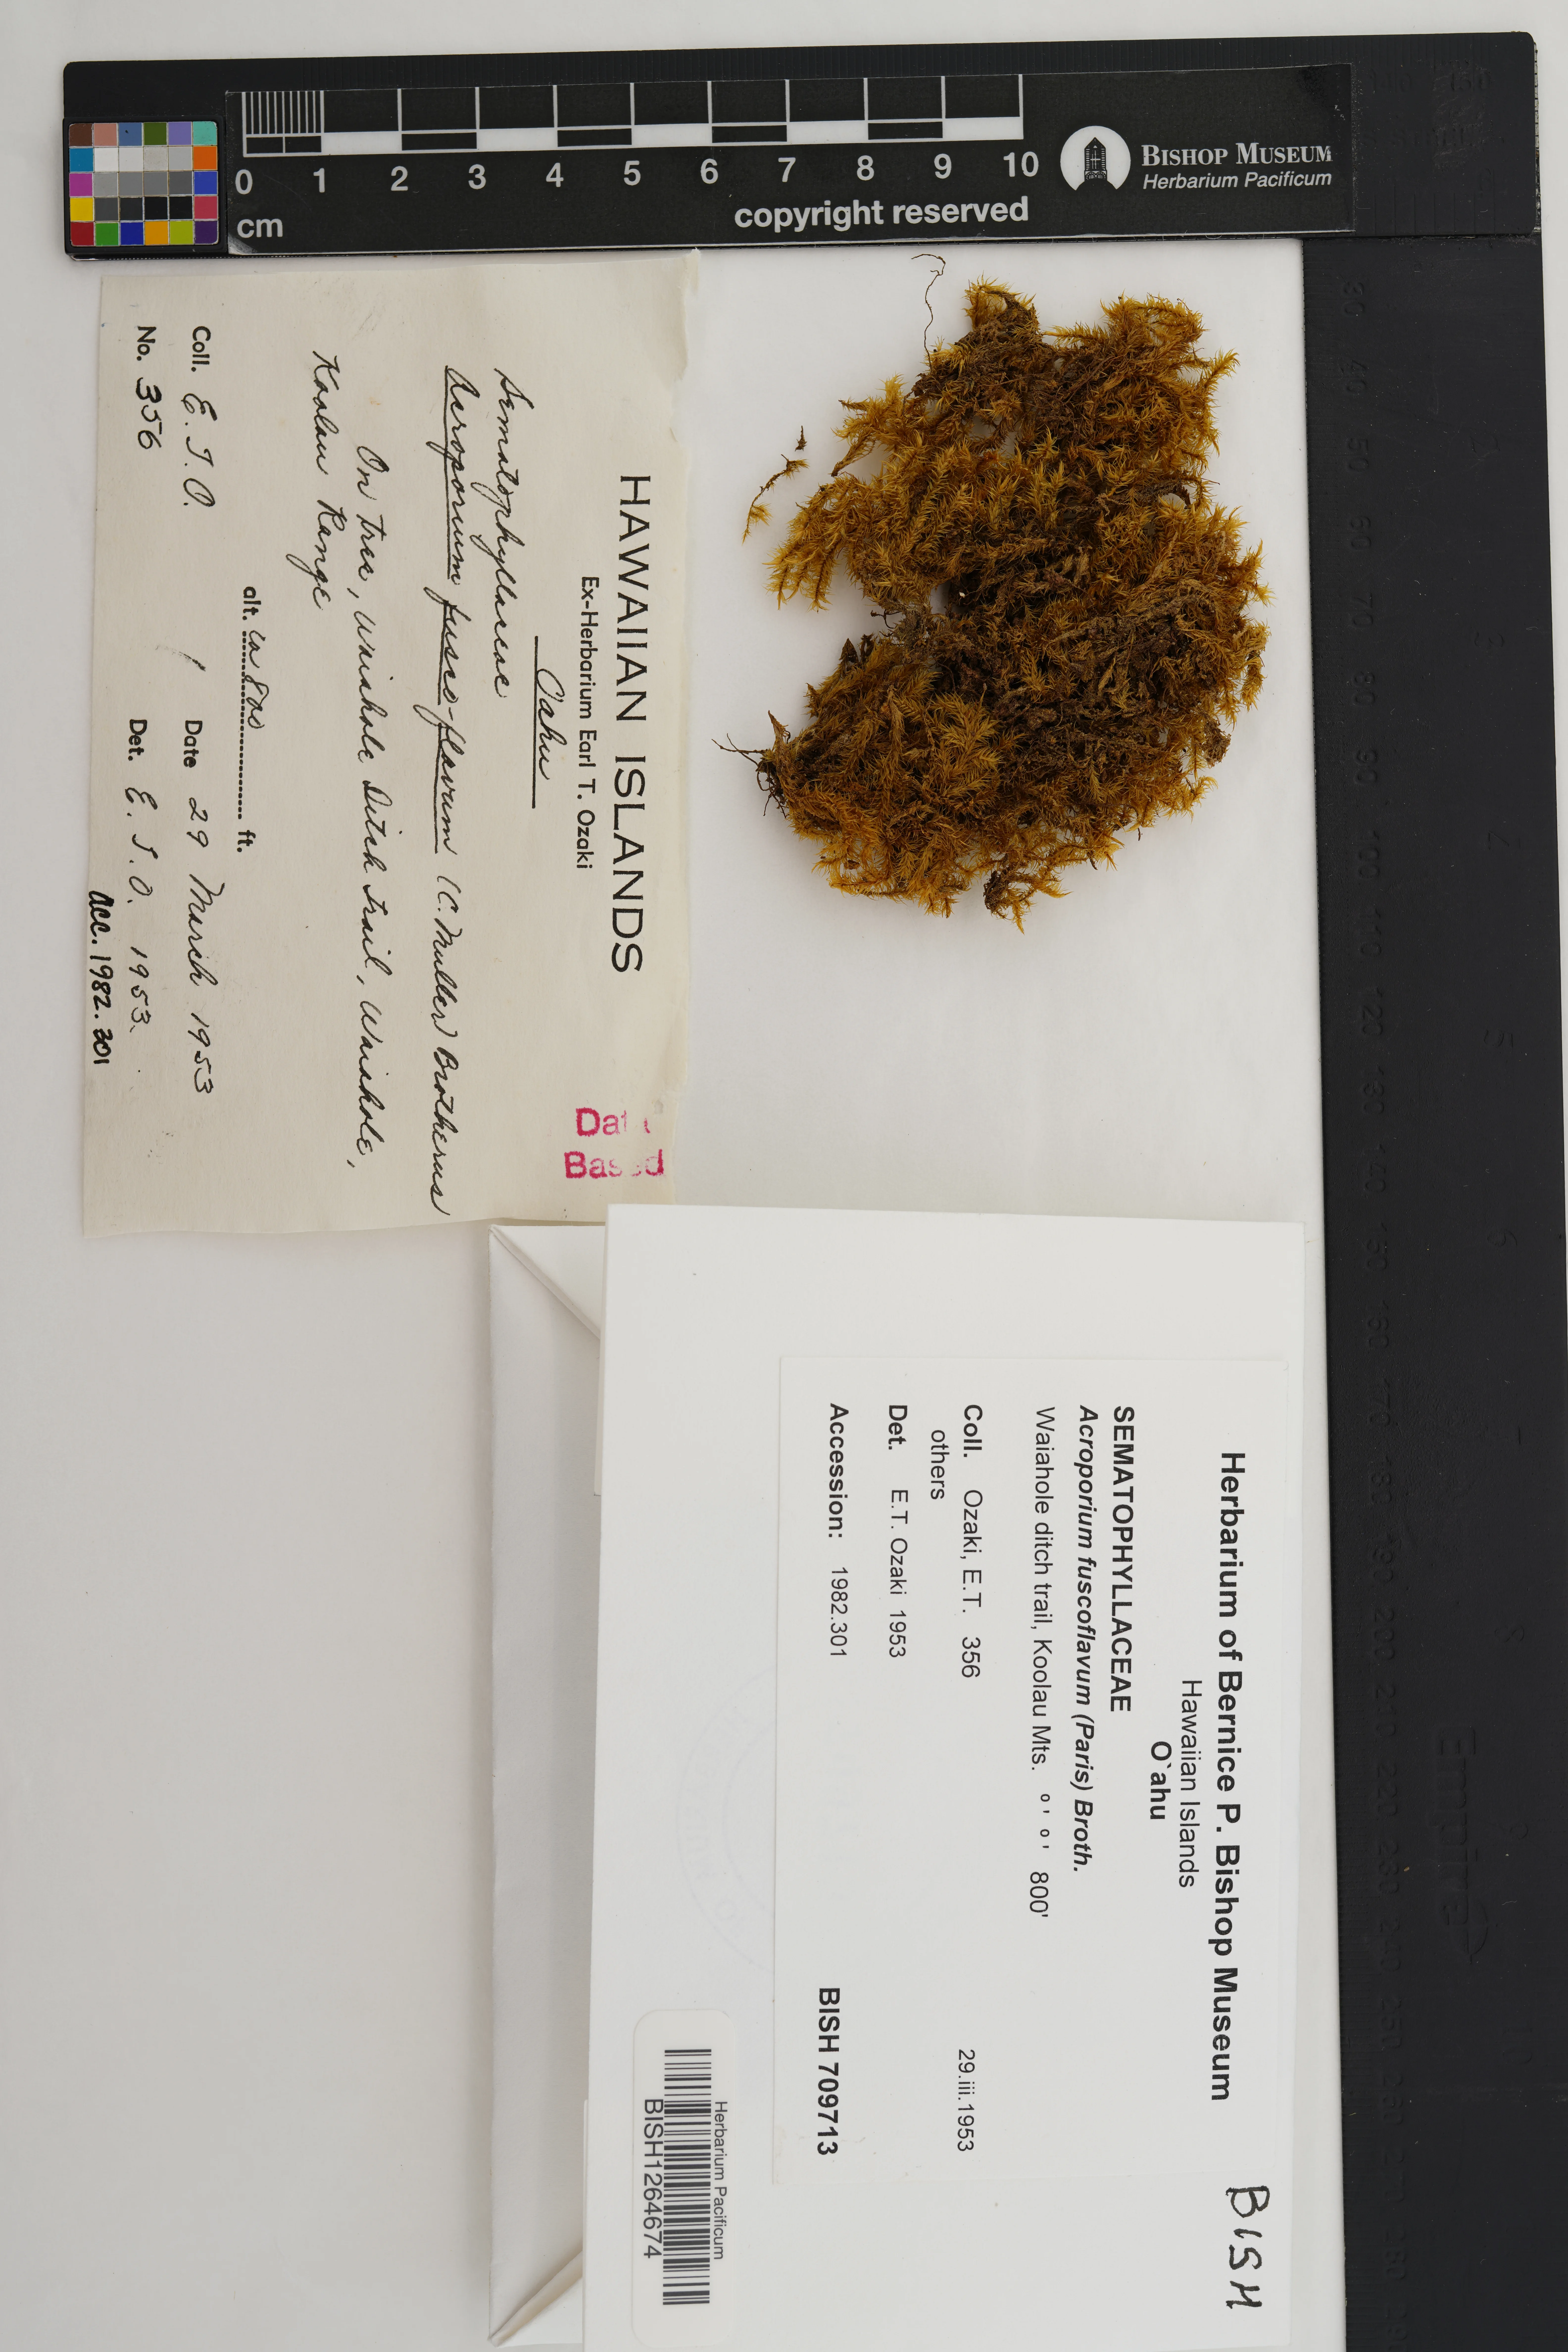 0 1 2 3 4 5 6 7 8 9 10
cm
copyright reserved
BISHOP MUSEUM
Herbarium Pacificum
HAWAIIAN ISLANDS
Ex-Herbarium Earl T. Ozaki
Oahu
Sematophyllaceae
Acroporium fusco-flavum (C. Muller) Brotherus
On tree, Waiahole Ditch Trail, Waiahole,
Koolau Range
alt. ca 800 ft.
Coll. E. T. O. Date 29 March 1953
No. 356 Det. E. T. O. 1953.
Acc. 1982.301
Data
Based
Herbarium of Bernice P. Bishop Museum
Hawaiian Islands
O`ahu
SEMATOPHYLLACEAE
Acroporium fuscoflavum (Paris) Broth.
Waiahole ditch trail, Koolau Mts. ° ' ° ' 800'
Coll. Ozaki, E.T. 356 29.iii.1953
others
Det. E.T. Ozaki 1953
Accession: 1982.301 BISH 709713
BISH
Herbarium Pacificum
BISH1264674